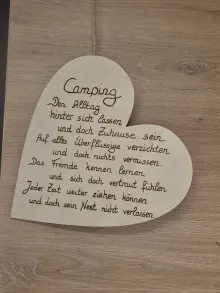 Camping
Den Alltag
hinter sich lassen
und doch Zuhause sein
Auf alles Überflüssige verzichten
und doch nichts vermissen.
Das Fremde kennen lernen
und sich doch vertraut fühlen
Jeder Zeit weiter ziehen können
und doch sein Nest nicht verlassen